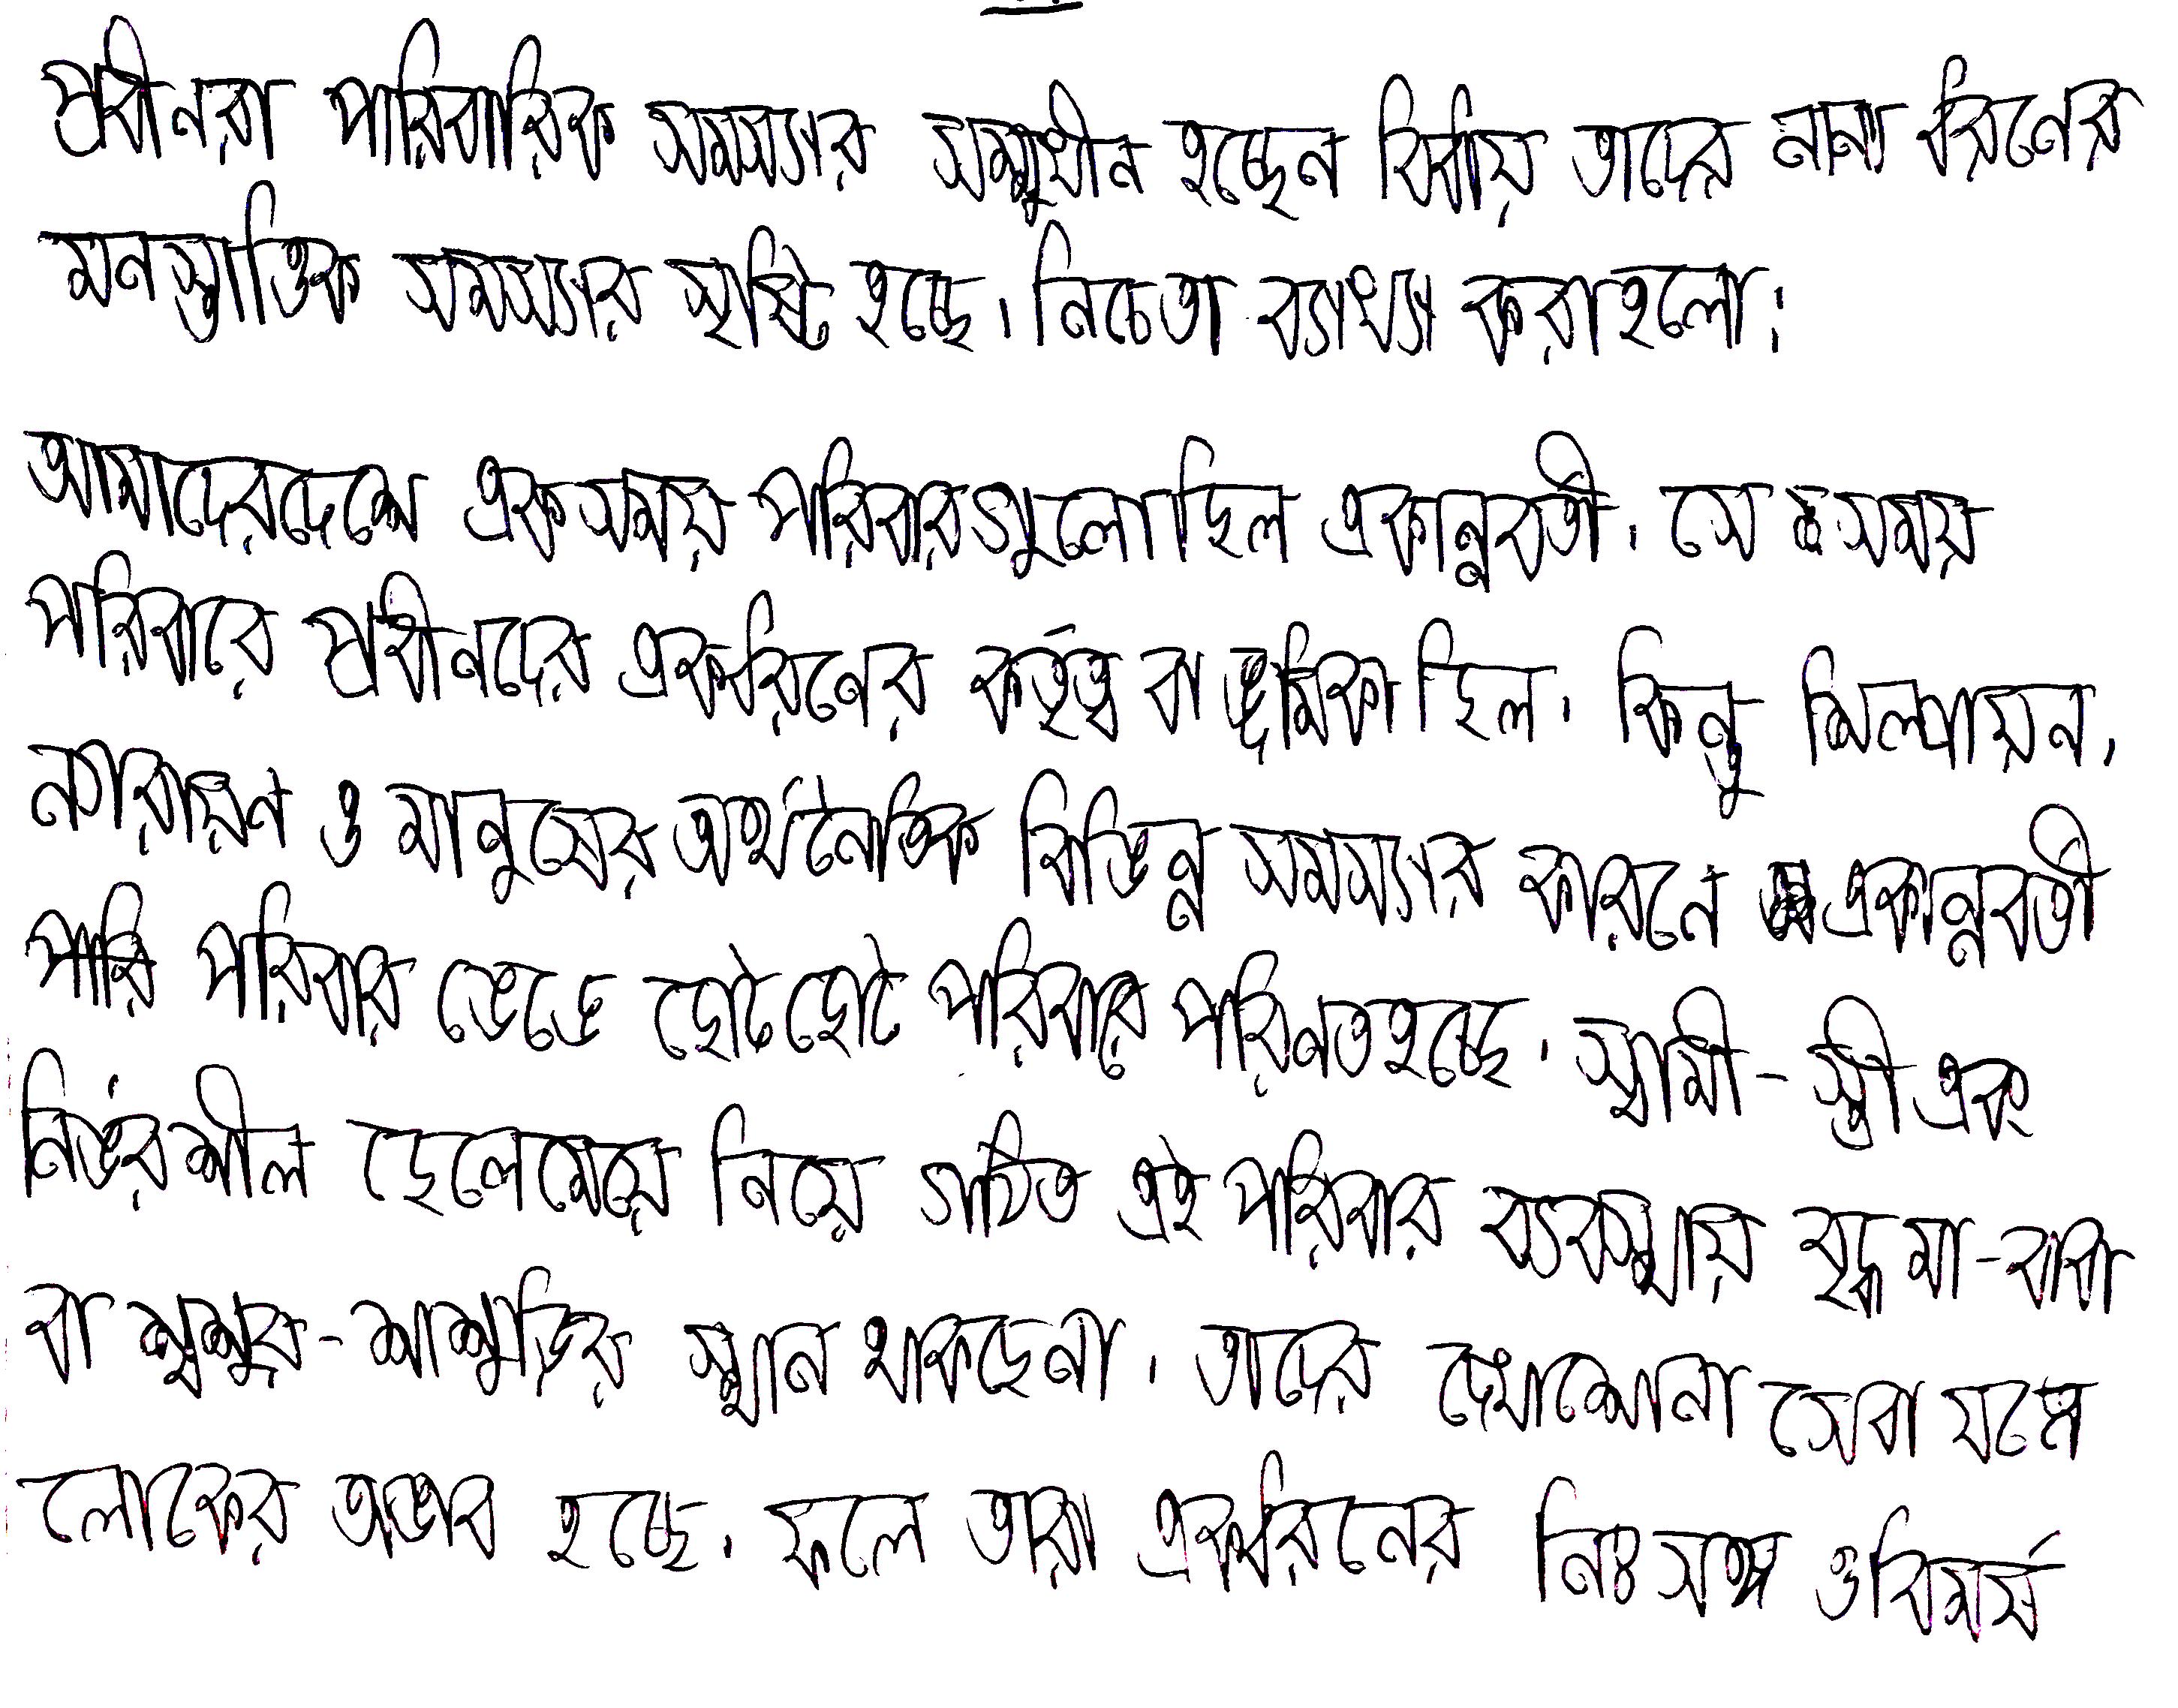 প্রবীনরা পারিবারিক সমস্যার সম্মুখীন হচ্ছেন বিধায় তাদের নানা ধরনের
মনস্তাত্তিক সমস্যার সৃষ্টি হচ্ছে। নিচে তা ব্যাখ্যা করা হলো:
আমাদের দেশে এক সময় পরিবারগুলো ছিল একান্নবর্তী। সে সময়
পরিবারে প্রবীনদের একধরনের কর্তৃত্ব বা ভূমিকা ছিল। কিন্তু শিল্পায়ন,
নগরায়ন ও মানুষের অর্থনৈতিক বিভিন্ন সমস্যার কারনে একান্নবর্তী
পারি পরিবার ভেঙে ছোট ছোট পরিবারে পরিনত হচ্ছে। স্বামী-স্ত্রী এক
নির্ভরশীল ছেলেমেয়ে নিয়ে গঠিত এই পরিবার ব্যবস্থায় বৃদ্ধ মা-বাবা
বা শ্বশুর-শাশুড়ির স্থান থাকছেনা। তাদের দেখাশোনা সেবা যত্নে
লোকের অভাব হচ্ছে। ফলে তারা একধরনের নিঃসঙ্গ ও বিমর্ষ